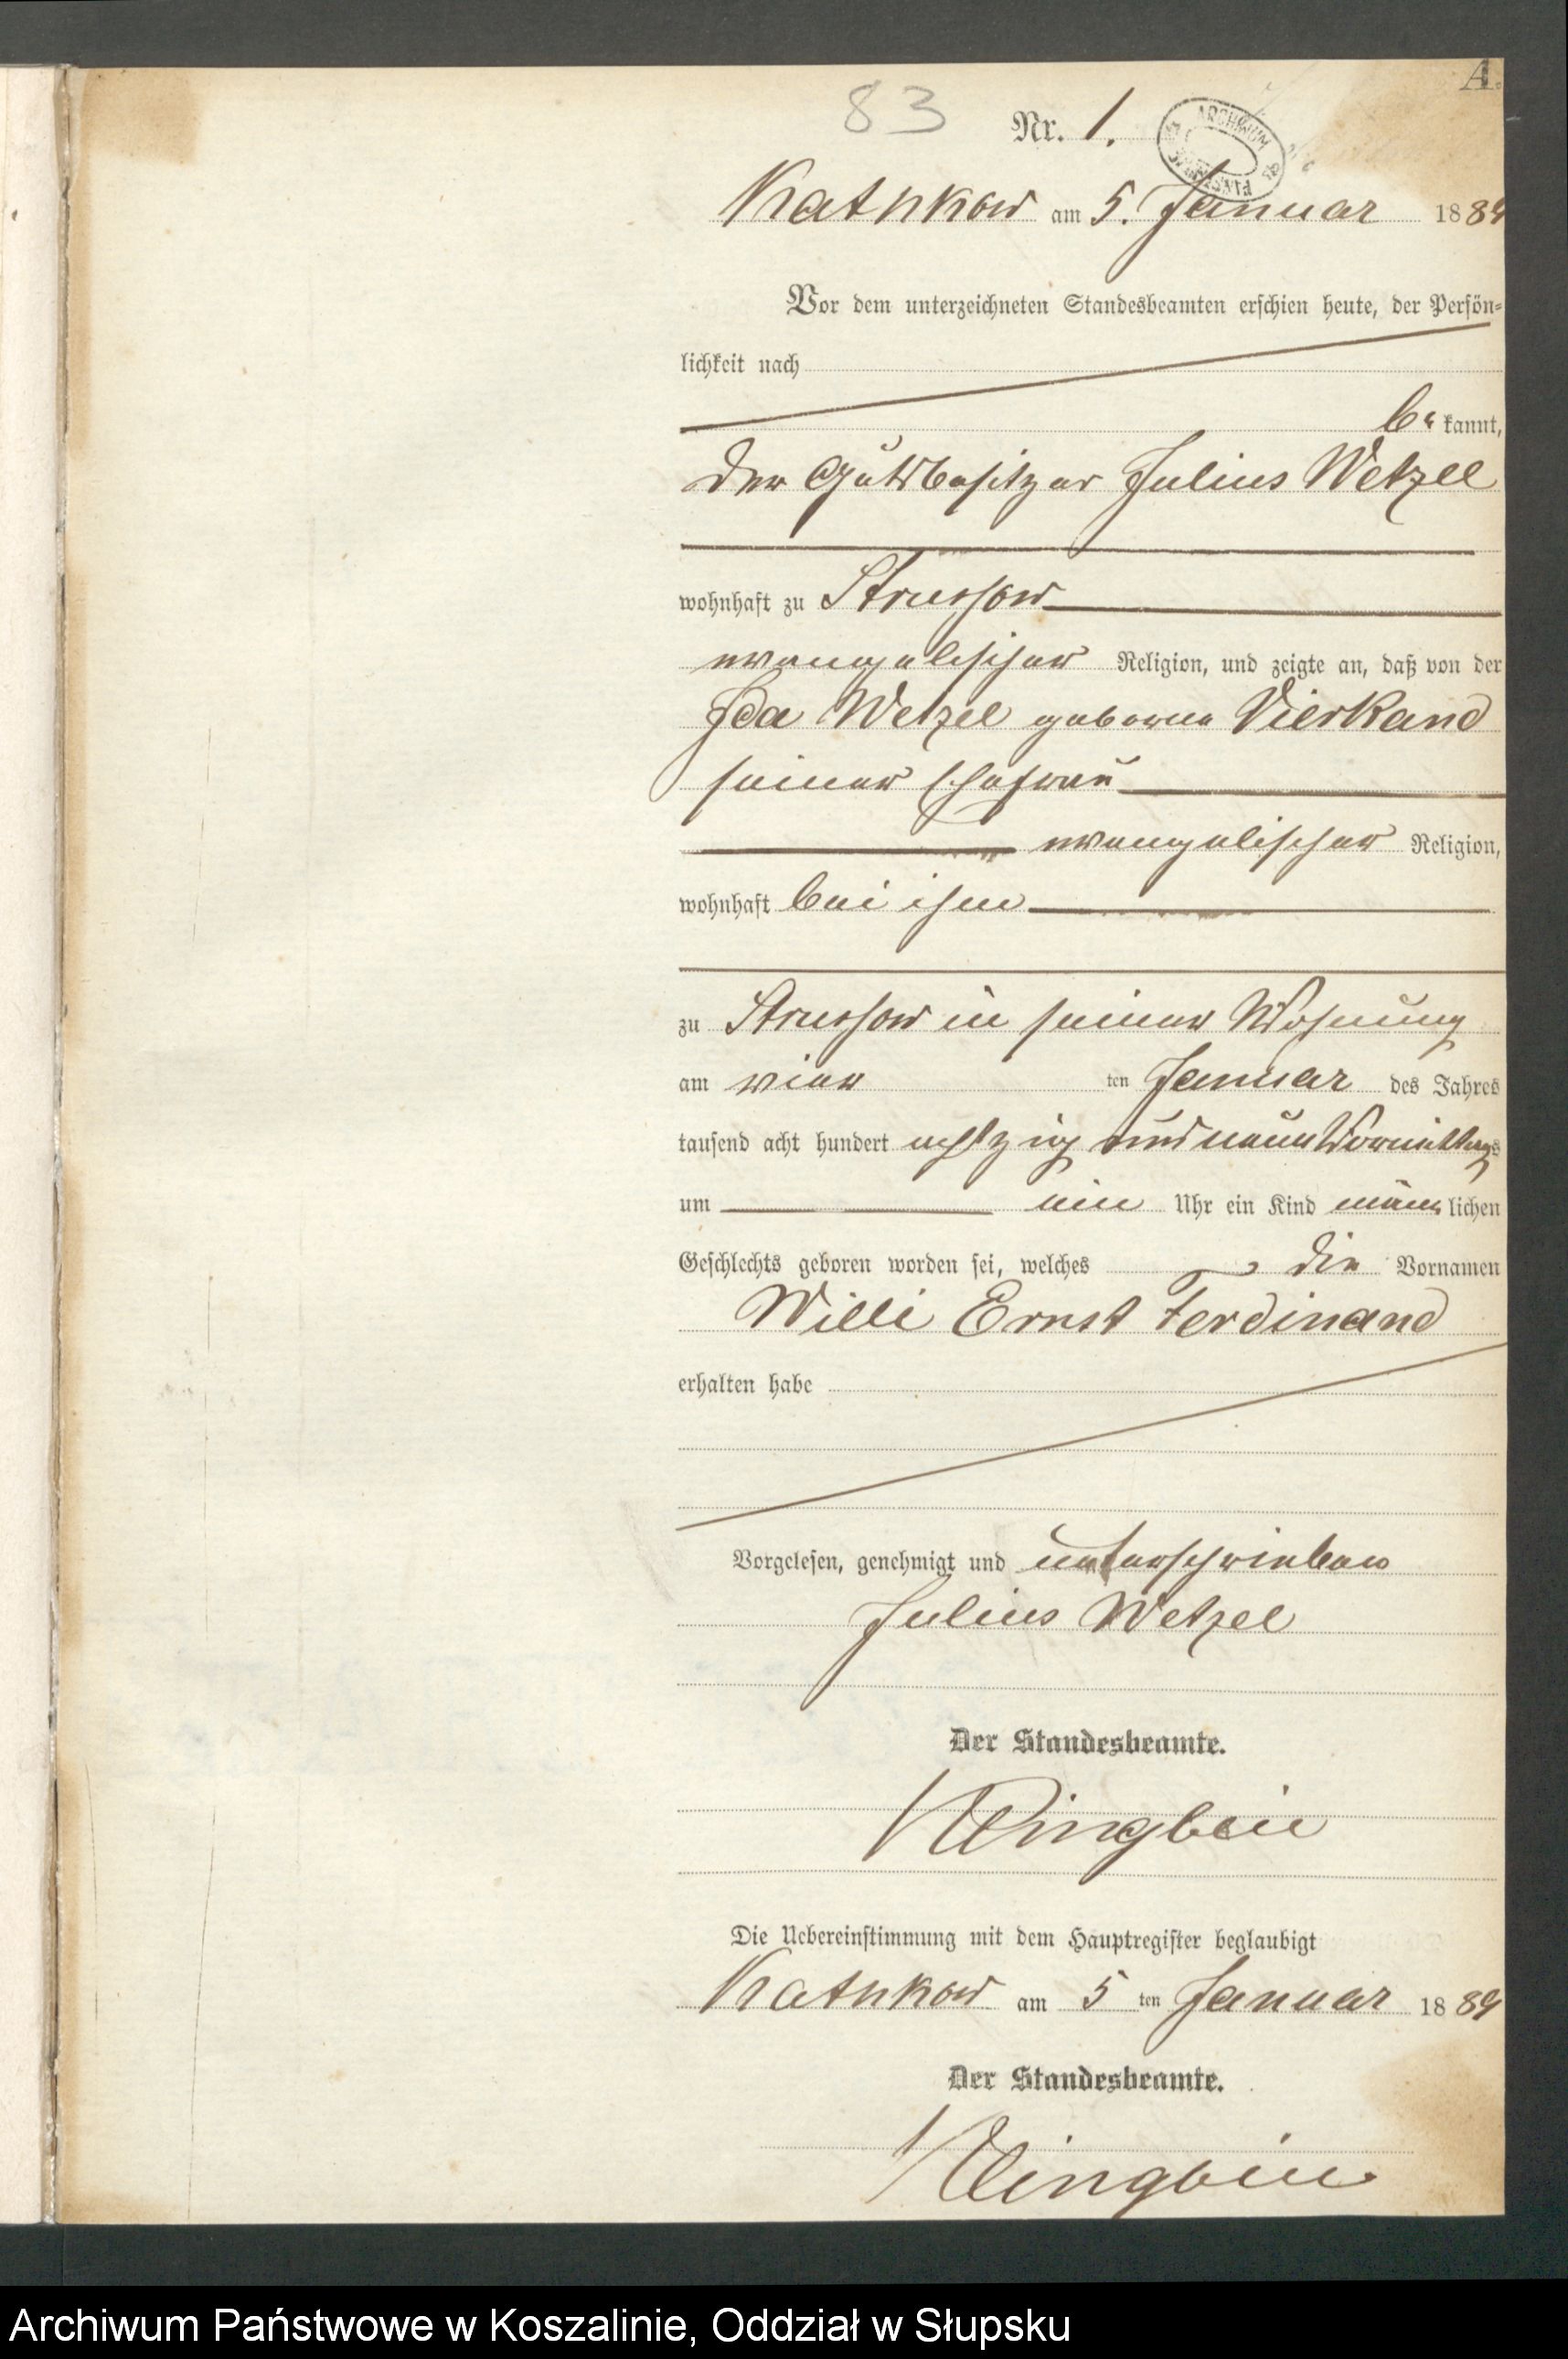 A.
83
Nr. 1.
ARCHIWUM
Katkow am 5. Januar 1889
Vor dem unterzeichneten Standesbeamten erschien heute, der Persön-
lichkeit nach
be kannt,
der Gutsbesitzer Julius Wetzel
wohnhaft zu Strussow
evangelischer Religion, und zeigte an, daß von der
Ida Wetzel geborne Vierkand
seiner Ehefrau
evangelischer Religion,
wohnhaft bei ihm
zu Strussow in seiner Wohnung
am vier ten Januar des Jahres
tausend acht hundert achtzig und neun Vormittags
um ein Uhr ein Kind männ lichen
Geschlechts geboren worden sei, welches die Vornamen
Willi Ernst Ferdinand
erhalten habe
Vorgelesen, genehmigt und unterschrieben
Julius Wetzel
Der Standesbeamte.
Klingbeil
Die Uebereinstimmung mit dem Hauptregister beglaubigt
Katkow am 5 ten Januar 1889
Der Standesbeamte.
Klingbeil
Archiwum Państwowe w Koszalinie, Oddział w Słupsku